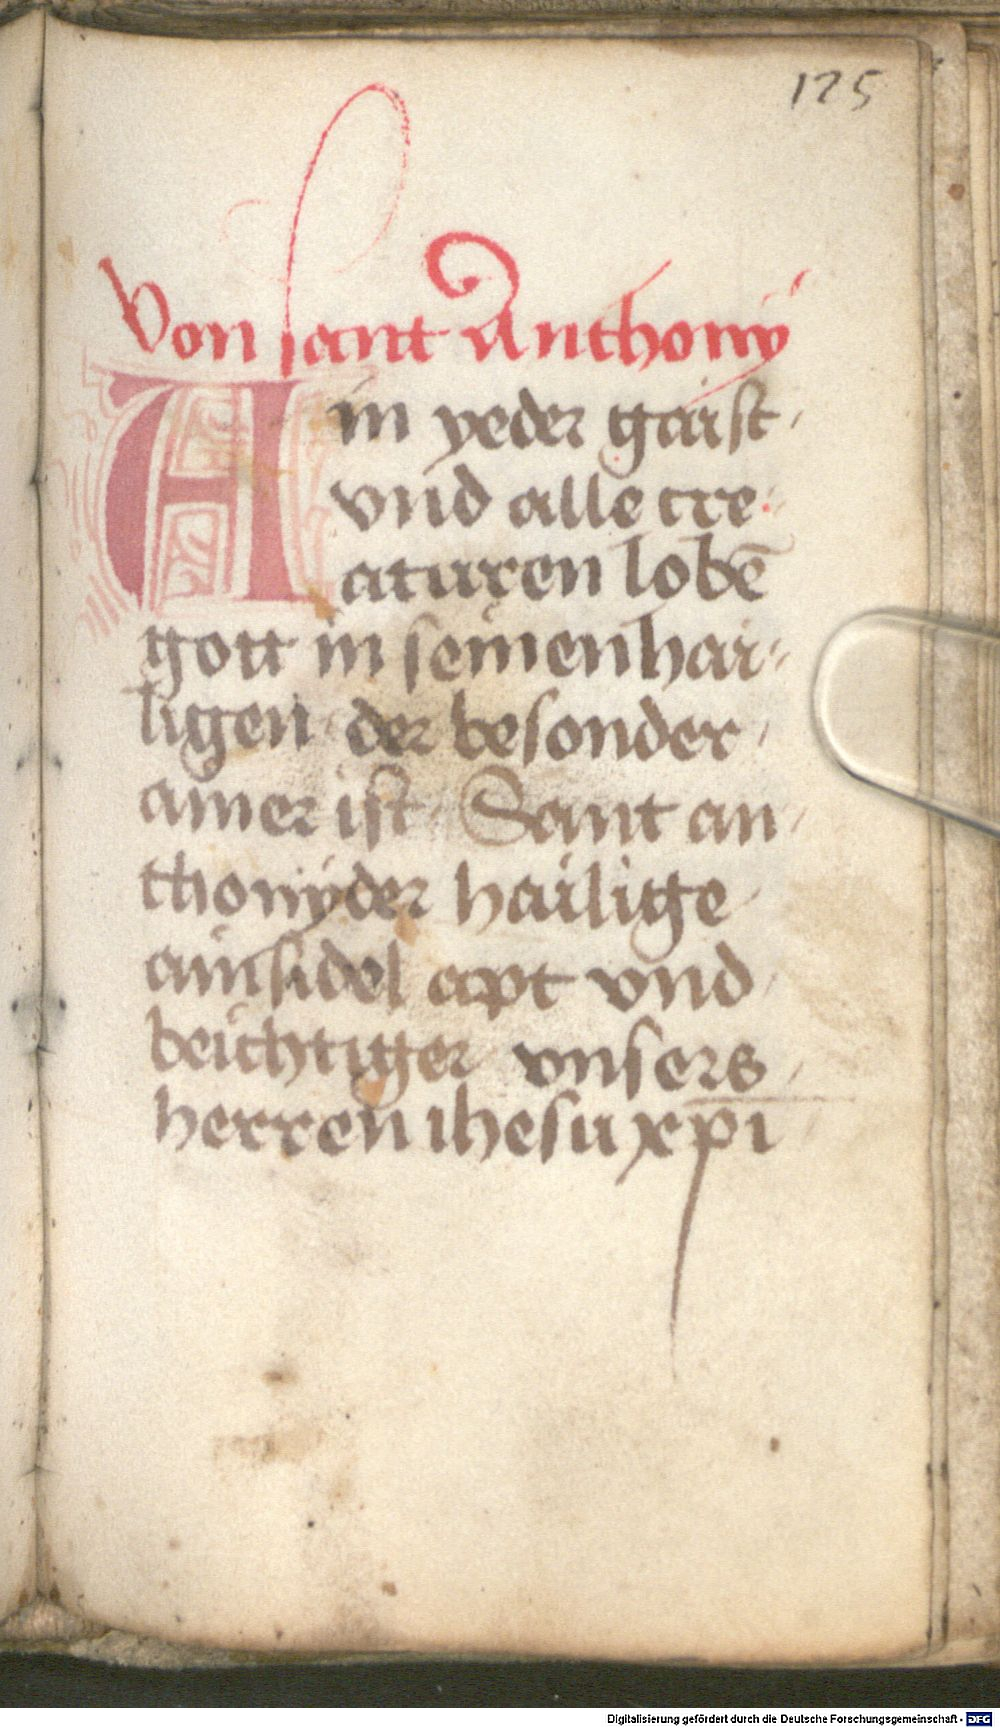 125
Von sant Anthonÿ
Ain yeder gaist
vnd alle cre-
aturen lobē
gott in seinen hai-
ligen der besonder
ainer ist Sant an
thonÿ der hailige
ainsidel apt vnd
beichtiger vnsers
herren ihesu xpi
Digitalisierung gefördert durch die Deutsche Forschungsgemeinschaft - DFG